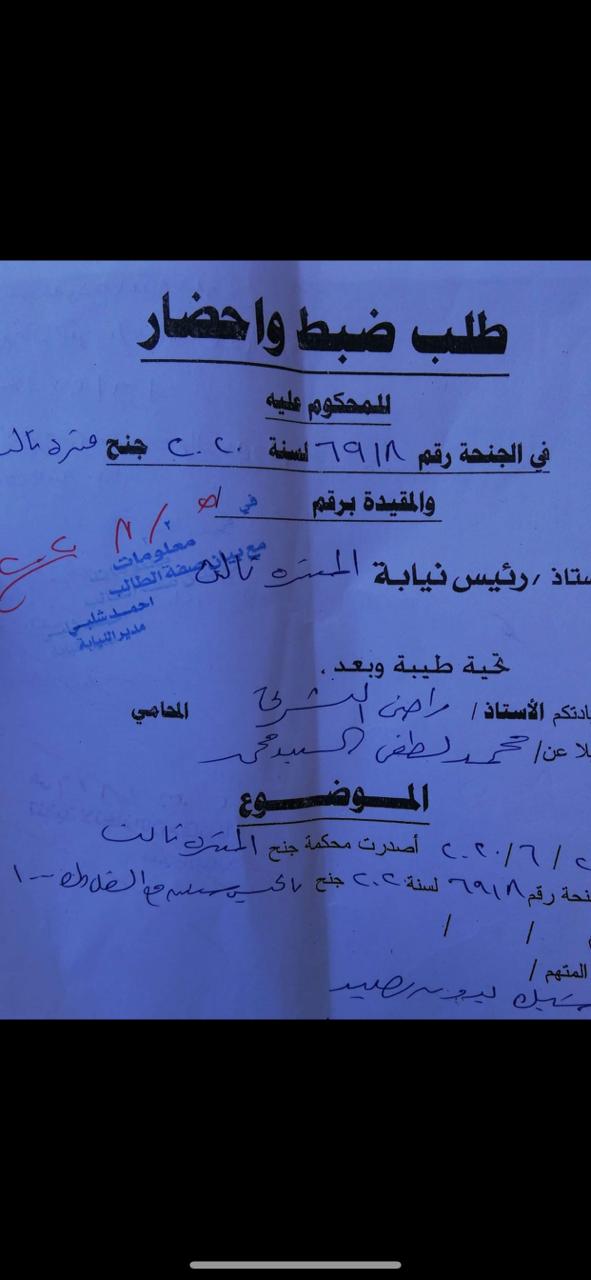 طلب ضبط واحضار
للمحكوم عليه
في الجنحة رقم ٦٩١٨ لسنة ٢٠٢٠ جنح منتزه تالت
والمقيدة برقم
في / ٨ /
معلومات
مع بيان صفة الطالب
احمد شلبي
مدير النيابة
ستاذ / رئيس نيابة المنتزه تالت
تحية طيبة وبعد ،
ادتكم الأستاذ / راضى المحامي
لا عن / محمد لطفى السيد محمد
الموضوع
/ ٦ / ٢٠٢٠ أصدرت محكمة جنح المنتزه تالت
نحة رقم ٦٩١٨ لسنة ٢٠٢٠ جنح بالحبس سنه مع الشغل
/ /
المتهم /